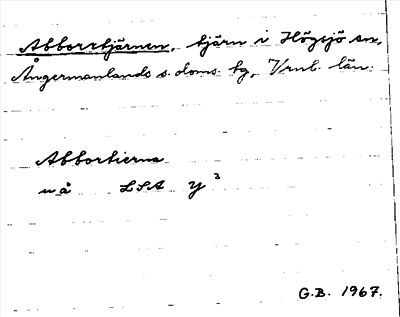 Abborrtjärnen, tjärn i Högsjö sn,
Ångermanlands s. doms. tg, Vrnl. län.
Abbortierna
u å LSA Y³
G.B. 1967.